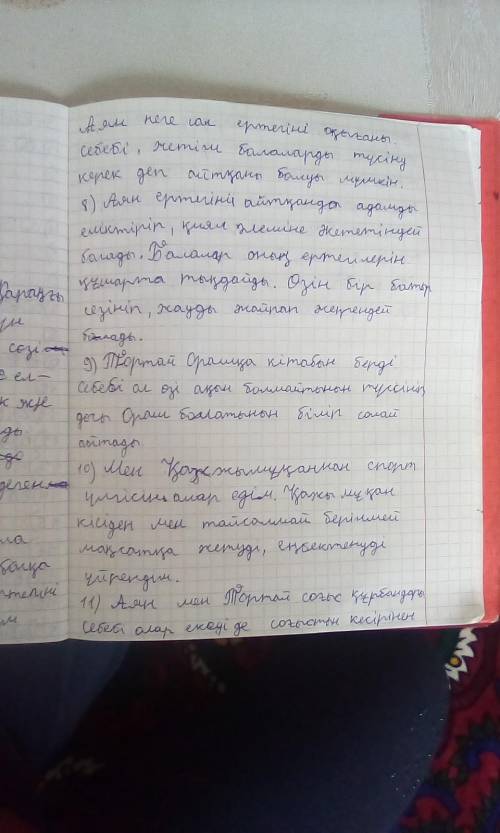 Аян неге сол ертегіні оқығаны.
Себебі, жетім балаларды түсіну
керек деп айтқаны болуы мүмкін.
8) Аян ертегіні айтқанда адамды
еліктіріп, қиял әлеміне жететіндей
болады. Балалар оның ертегілерін
құмарта тыңдайды. Өзін бір батыр
сезініп, жауды жайрап жеңгендей
болады.
9) Тортай Орашқа кітабын берді
себебі ол өзі ақын болмайтынын түсініп
Ораш болатынын біліп солай
айтады
10) Мен Қажымұқаннан спорт
үлгісін алар едім. Қажы мұқан
кісіден мен тайсалмай берінмей
мақсатқа жетуді, еңбектенуді
үйрендім.
11) Аян мен Тортай соғыс құрбандары
себебі олар екеуі де соғыстын кесірінен
Қараңғы
ын
сөзі
е ел-
к жүе
ды
деген
ла
басқа
ртегіні
м